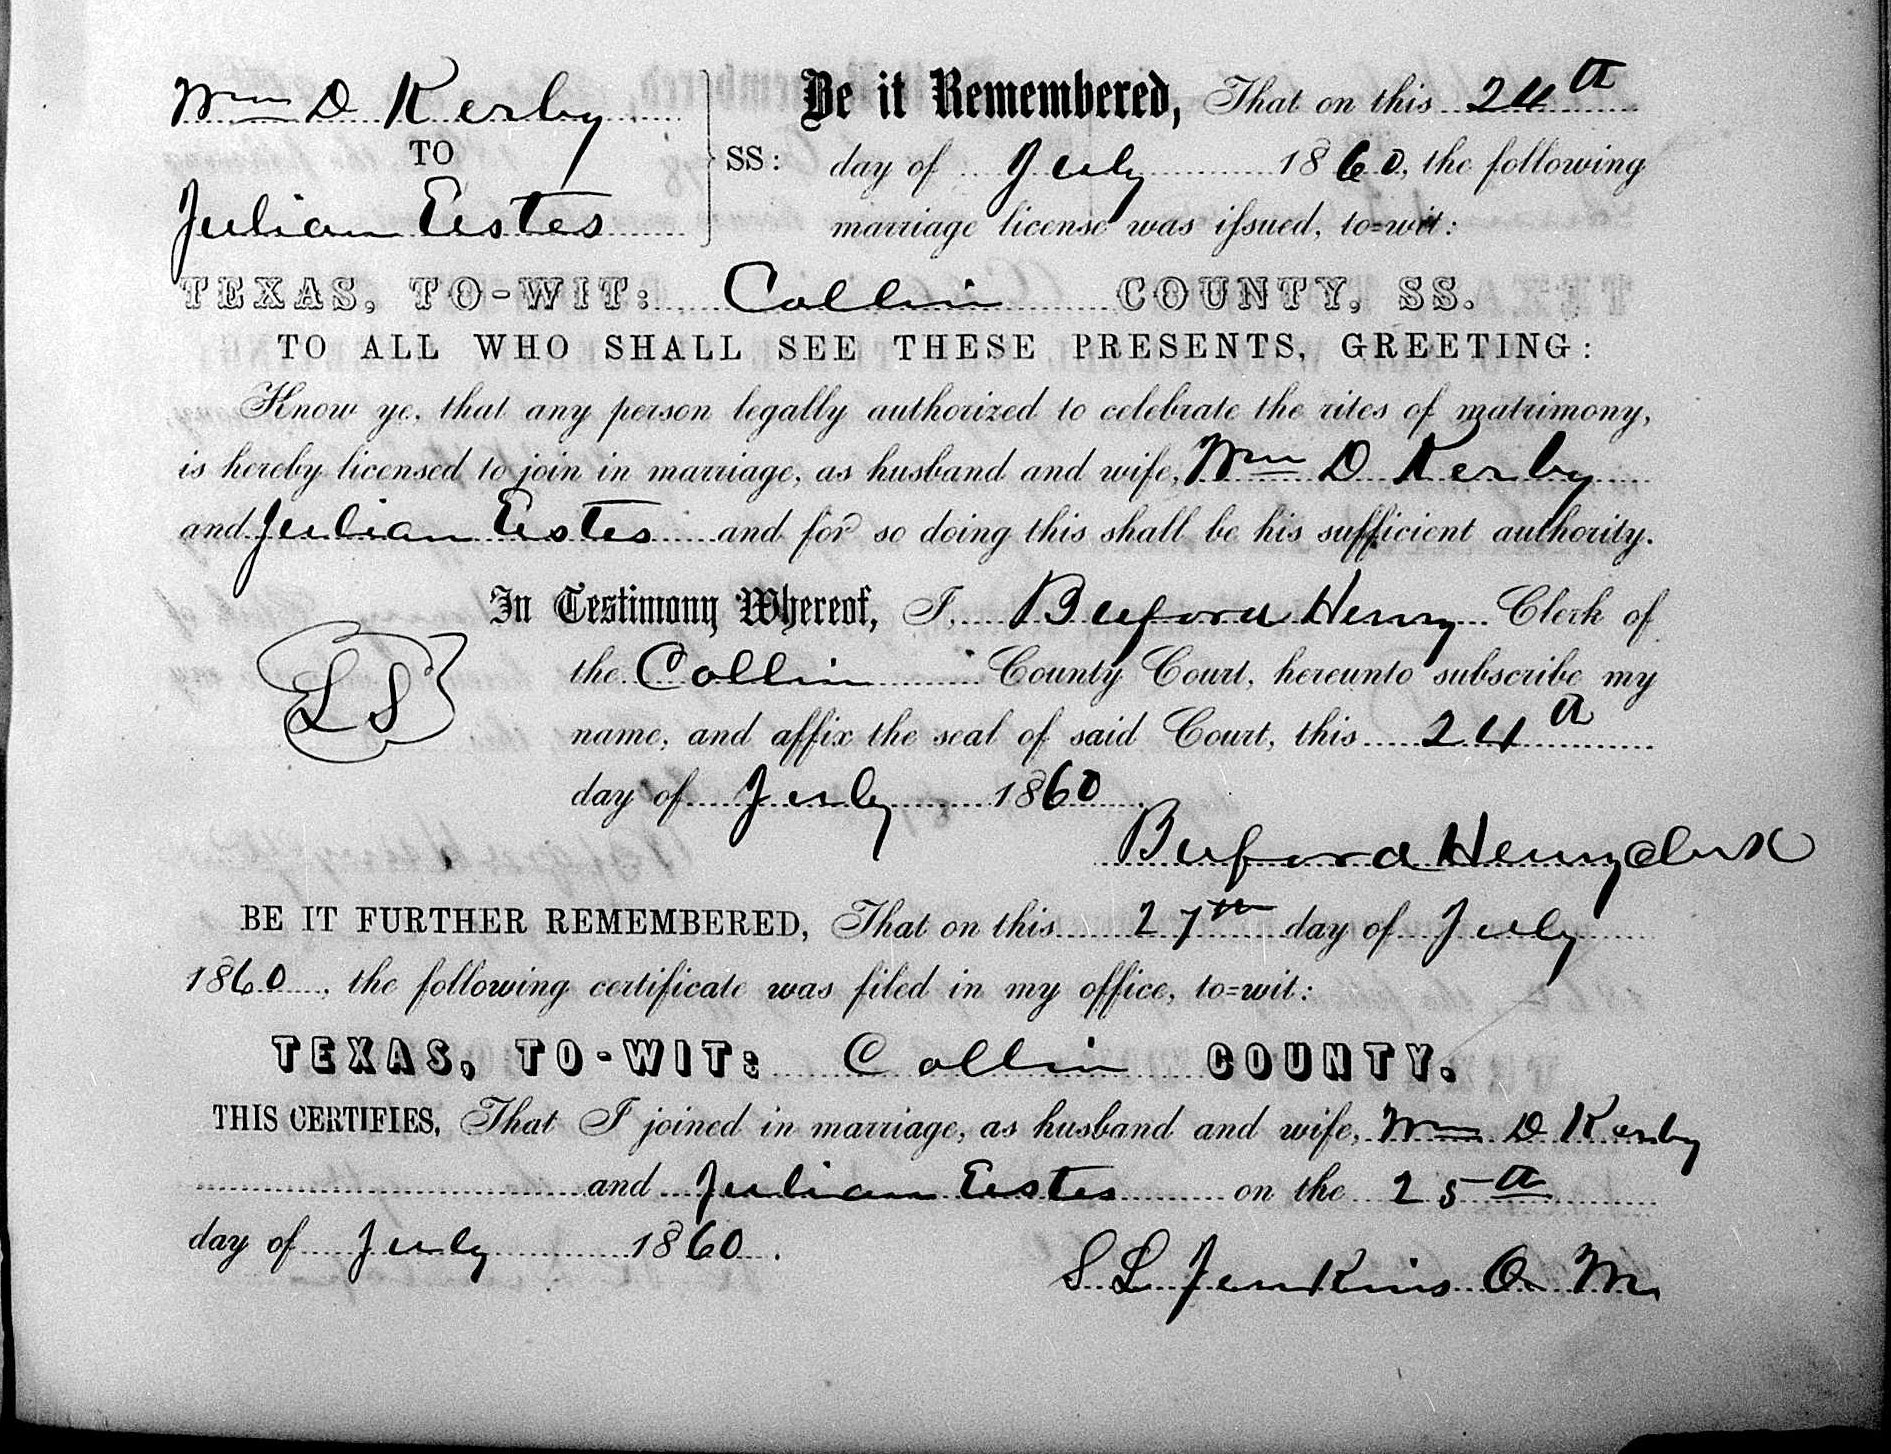 Wm D Kerby
TO
Julian Estes
SS:
Be it Remembered, That on this 24th
day of July 1860, the following
marriage license was issued, to=wit:
TEXAS, TO-WIT: Collin COUNTY, SS.
TO ALL WHO SHALL SEE THESE PRESENTS, GREETING:
Know ye, that any person legally authorized to celebrate the rites of matrimony,
is hereby licensed to join in marriage, as husband and wife, Wm D Kerby
and Julian Estes and for so doing this shall be his sufficient authority.
In Testimony Whereof, I, Buford Henry Clerk of
L S
the Collin County Court, hereunto subscribe my
name, and affix the seal of said Court, this 24th
day of July 1860
Buford Henry Clerk
BE IT FURTHER REMEMBERED, That on this 27th day of July
1860, the following certificate was filed in my office, to=wit:
TEXAS, TO-WIT: Collin COUNTY.
THIS CERTIFIES, That I joined in marriage, as husband and wife, Wm D Kerby
and Julian Estes on the 25th
day of July 1860.
S. L. Jenkins O M.